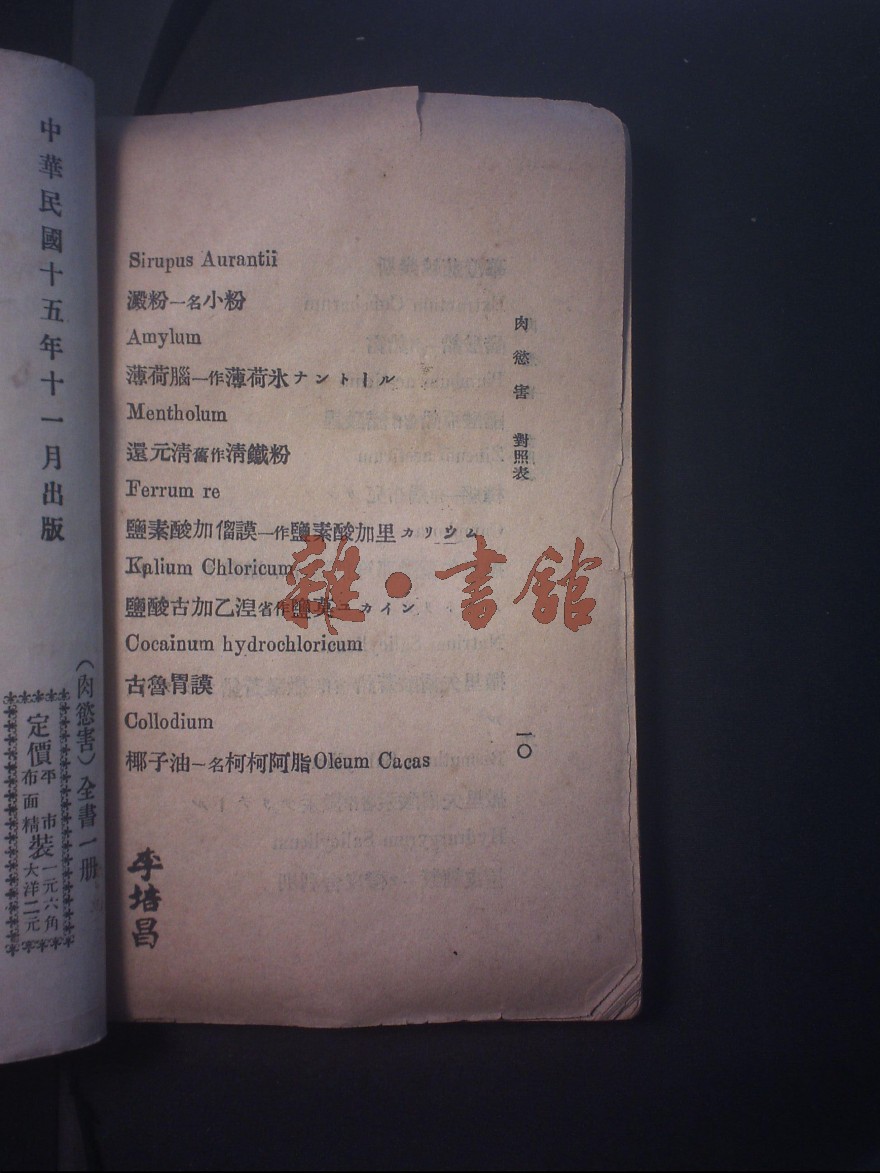 肉慾害 對照表
一〇
Sirupus Aurantii
澱粉一名小粉
Amylum
薄荷腦一作薄荷氷ナントトル
Mentholum
還元清舊作清鐵粉
Ferrum re
鹽素酸加僱謨一作鹽素酸加里カリウム
Kalium Chloricum
鹽酸古加乙湼省作鹽莫コカイン
Cocainum hydrochloricum
古魯胃謨
Collodium
椰子油一名柯柯阿脂Oleum Cacas
李培昌
中華民國十五年十一月出版
〈肉慾害〉全書一册
定價平裝一元六角
布面精裝大洋二元
雜·書館